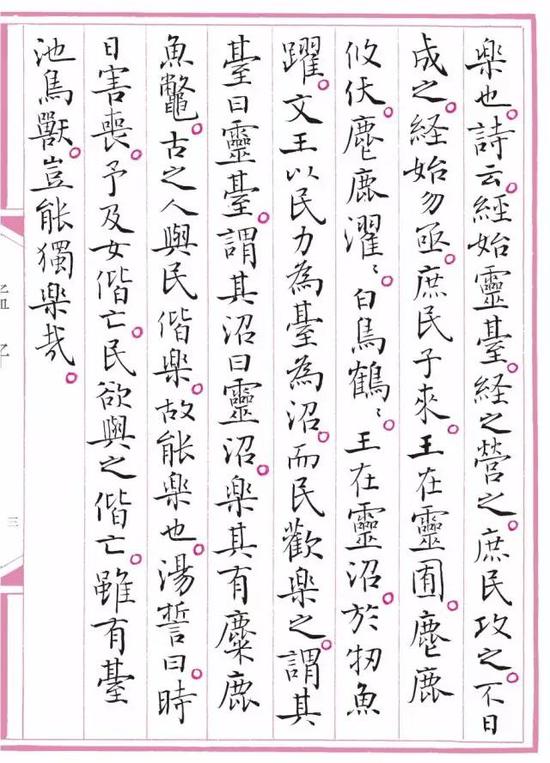 楽也。詩云。経始靈臺。経之營之。庶民攻之。不日
成之。経始勿亟。庶民子來。王在靈囿。麀鹿
攸伏。麀鹿濯〻。白鳥鶴〻。王在靈沼。於牣魚
躍。文王以民力為臺為沼。而民歡楽之。謂其
臺曰靈臺。謂其沼曰靈沼。楽其有麋鹿
魚鼈。古之人與民偕楽。故能楽也。湯誓曰。時
日害喪。予及女偕亡。民欲與之偕亡。雖有臺
池鳥獸。豈能獨楽哉。
三